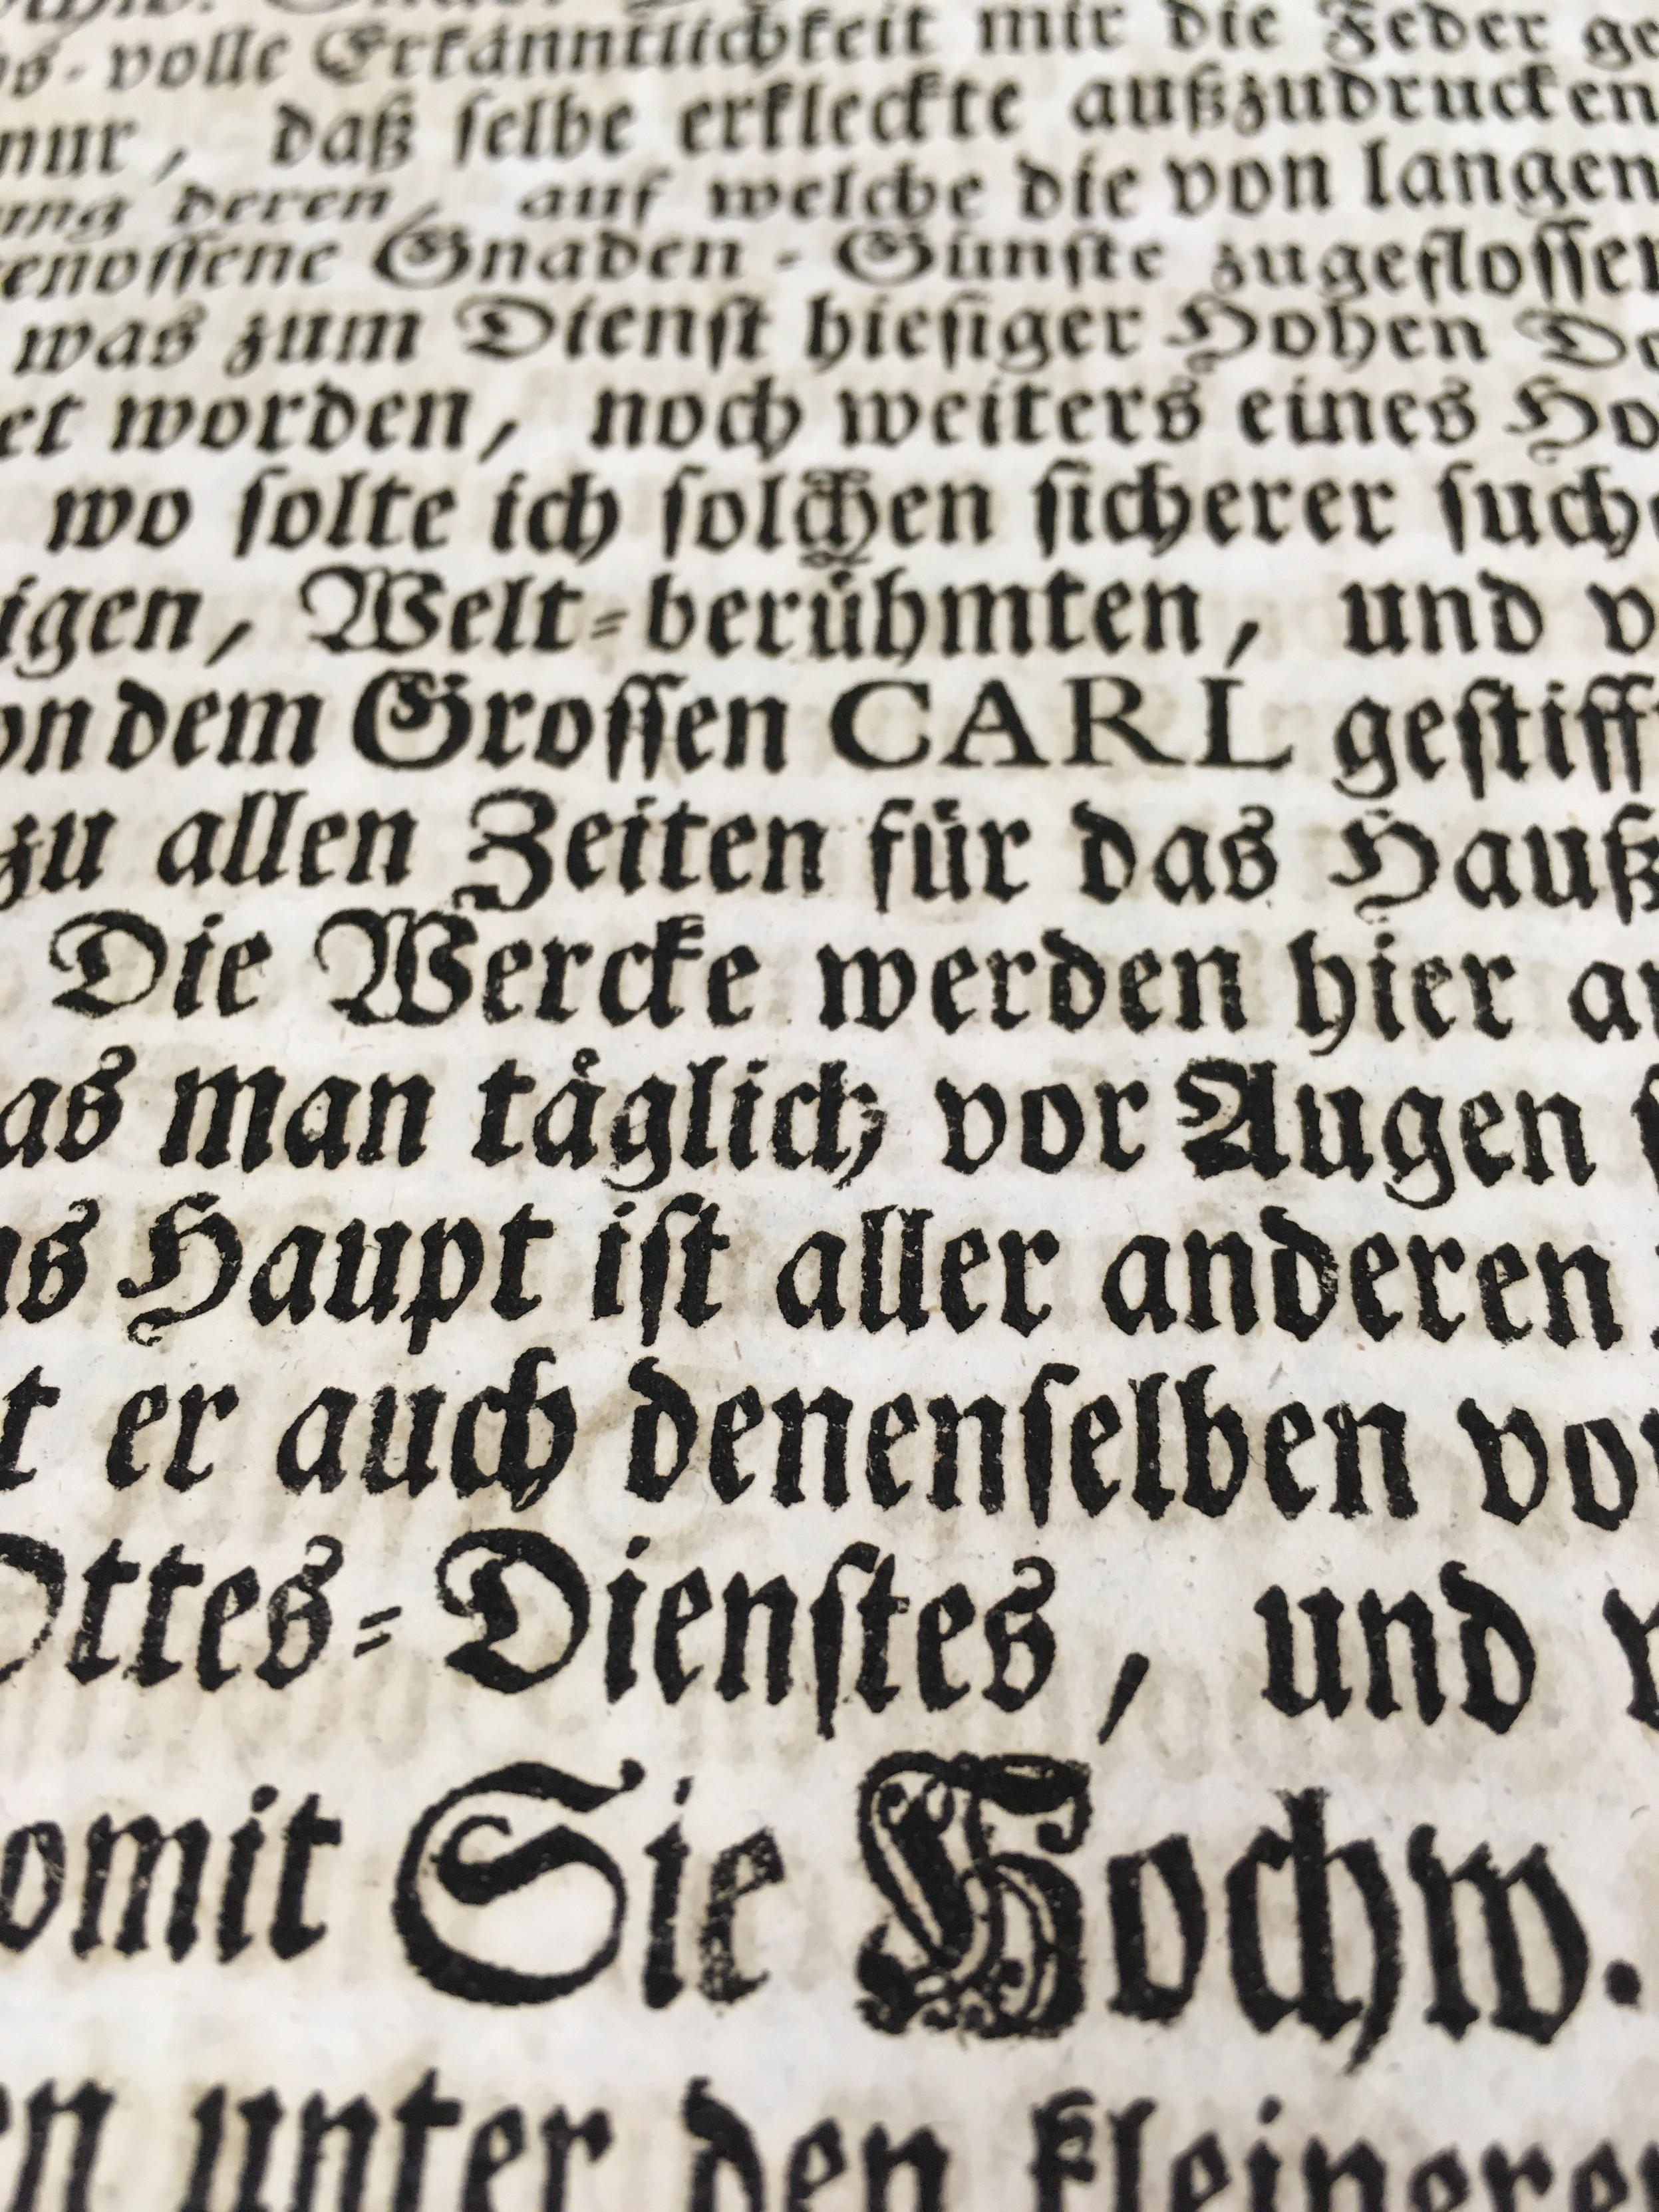 volle Erkänntlichkeit mir die Feder
nur, daß selbe erkleckte außzudrucken
deren, auf welche die von langen
enossene Gnaden-Günste zugeflossen
was zum Dienst hiesiger Hohen
et worden, noch weiters eines Ho
wo solte ich solchen sicherer suche
igen, Welt-berühmten, und v
on dem Grossen CARL gestifft
zu allen Zeiten für das Hauß
Die Wercke werden hier
as man täglich vor Augen
Haupt ist aller anderen
t er auch denenselben vor
Ottes-Dienstes, und
omit Sie Hochw.
en unter den kleineren